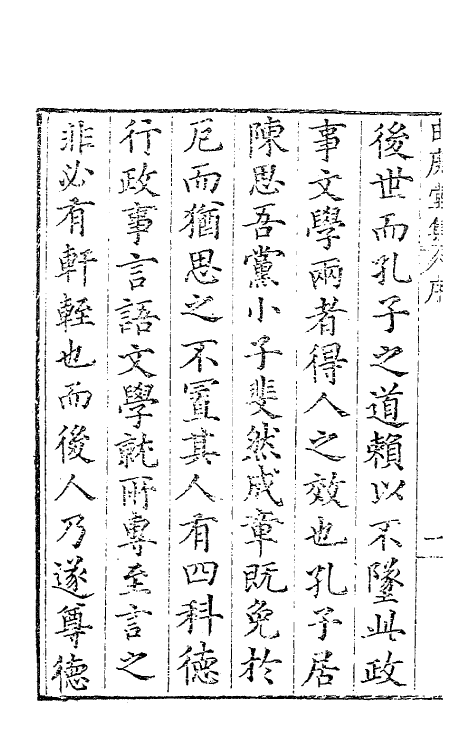 後世而孔子之道賴以不墜此政
事文學兩者得人之效也孔子居
陳思吾黨小子斐然成章既免於
厄而猶思之不置其人有四科德
行政事言語文學就所專至言之
非必有軒輊也而後人乃遂尊德